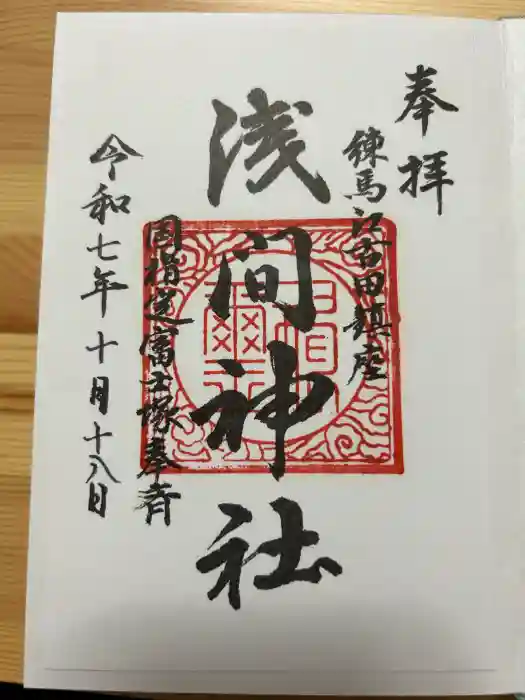 奉拝
練馬江古田鎮座
浅間神社
国指定富士塚奉斉
令和七年十月十八日